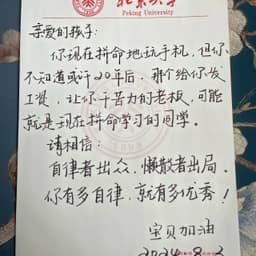 北京大学
Peking University
亲爱的孩子:
你现在拼命地玩手机,但你
不知道或许20年后,那个给你发
工资,让你干苦力的老板,可能
就是现在拼命学习的同学。
请相信:
自律者出众,懒散者出局。
你有多自律,就有多优秀!
宝贝加油
2024.8.2